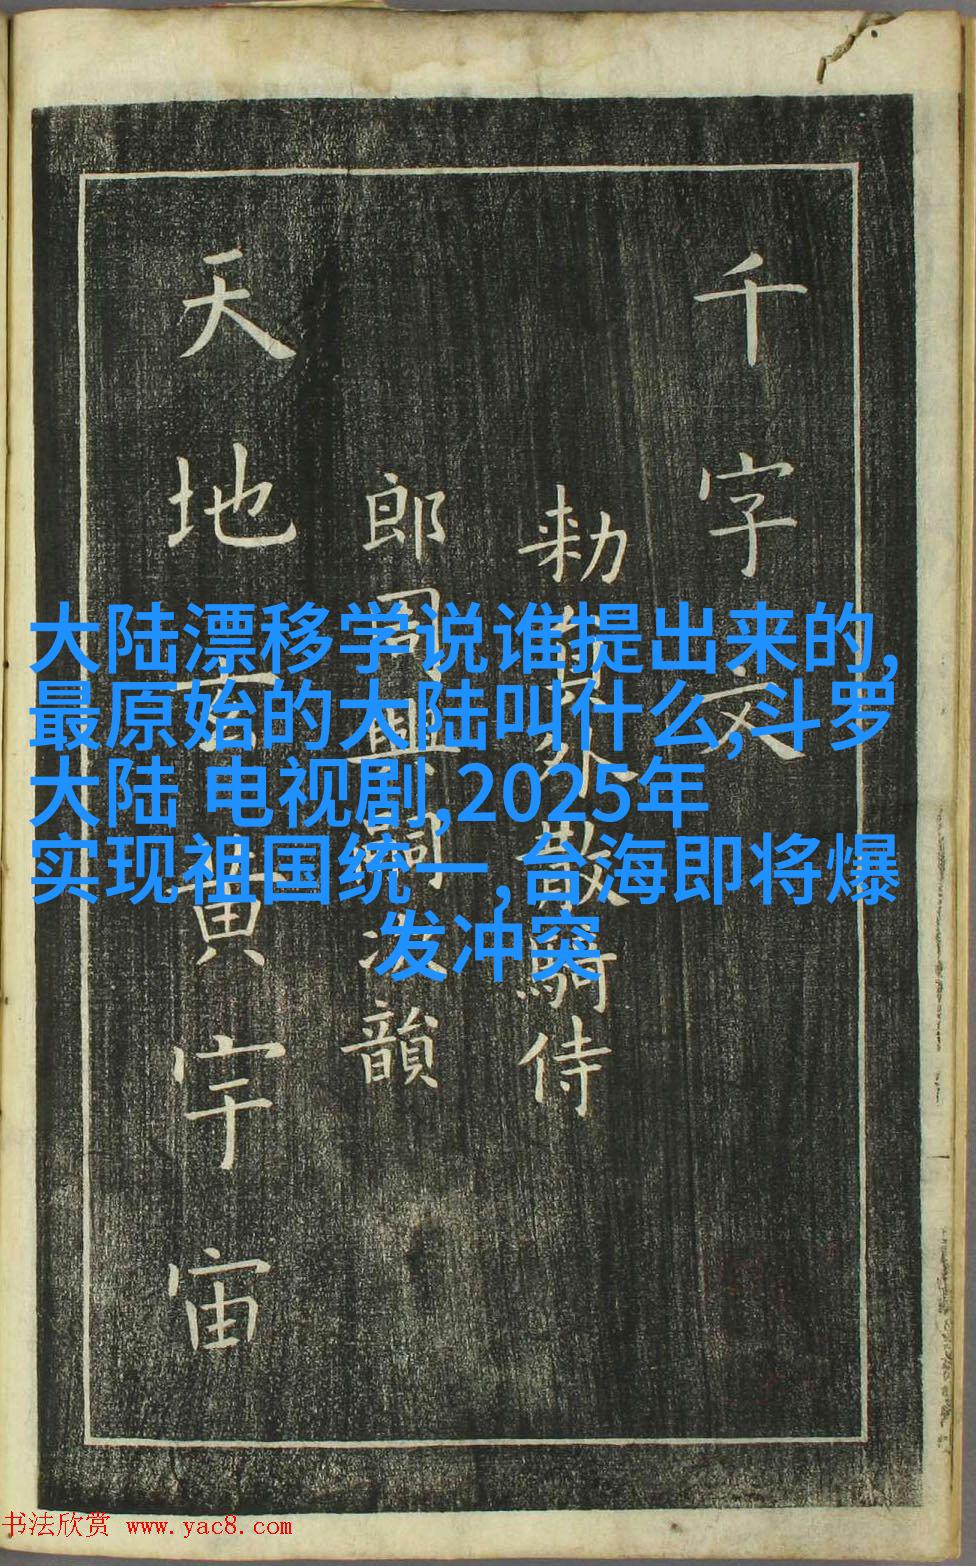 千字文
勑員外散騎侍
郎周興嗣次韻
天地玄黃宇宙
大陆漂移学说谁提出来的,
最原始的大陆叫什么,斗罗
大陆 电视剧,2025年
实现祖国统一,台海即将爆
发冲突
书法欣赏 www.yac8.com